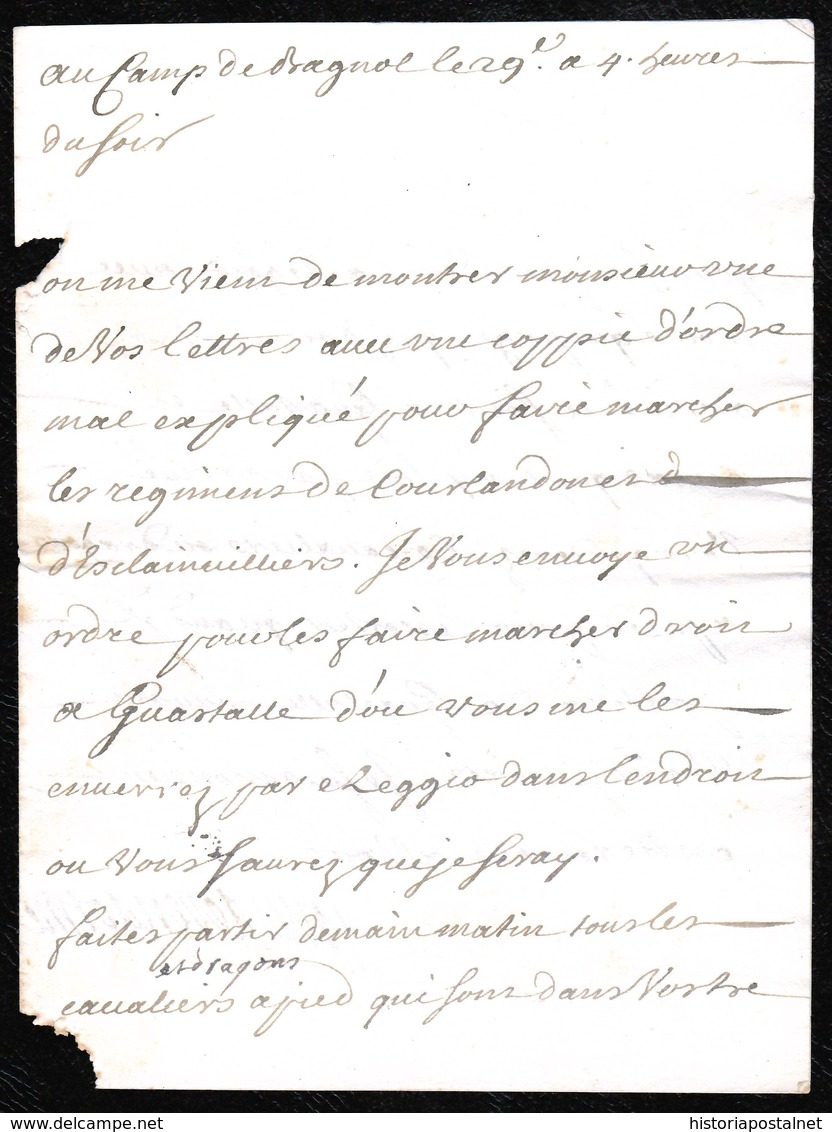 au Camp de Bagnol le 29e. a 4. heures
du soir
on me vient de montrer monsieur une
de Vos lettres auec une coppie d'ordre
mal expliqué pour faire marcher
les regimens de Courlandon et d
d'Esclainuilliers. Je Vous enuoye un
ordre pour les faire marcher droit
a Guastalle d'ou vous me les
enuerrez par Reggio dans lendroit
ou Vous saurez que je seray.
faites partir demain matin tous les
et dragons
caualiers a pied qui sont dans Vostre
delcampe.net
historiapostalnet